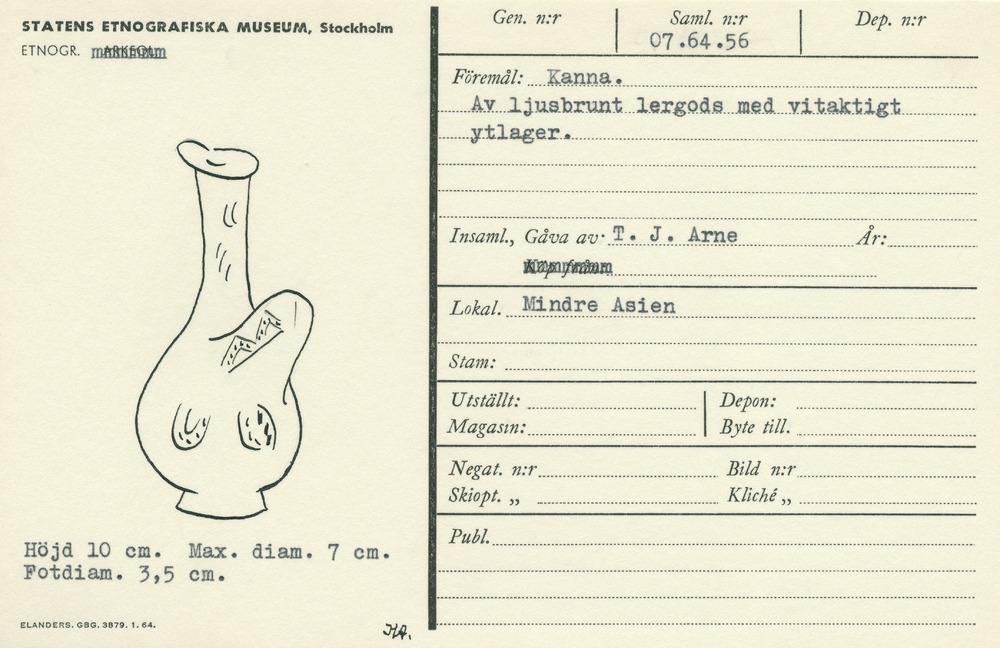 STATENS ETNOGRAFISKA MUSEUM, Stockholm
ETNOGR. ARKEOL.
Höjd 10 cm. Max. diam. 7 cm.
Fotdiam. 3,5 cm.
ELANDERS. GBG. 3879. 1. 64.
HA.
Gen. n:r Saml. n:r Dep. n:r
07.64.56
Föremål: Kanna.
Av ljusbrunt lergods med vitaktigt
ytlager.
Insaml., Gåva av T. J. Arne År:
Köp från
Lokal. Mindre Asien
Stam:
Utställt: Depon:
Magasin: Byte till.
Negat. n:r Bild n:r
Skiopt. „ Kliché „
Publ.